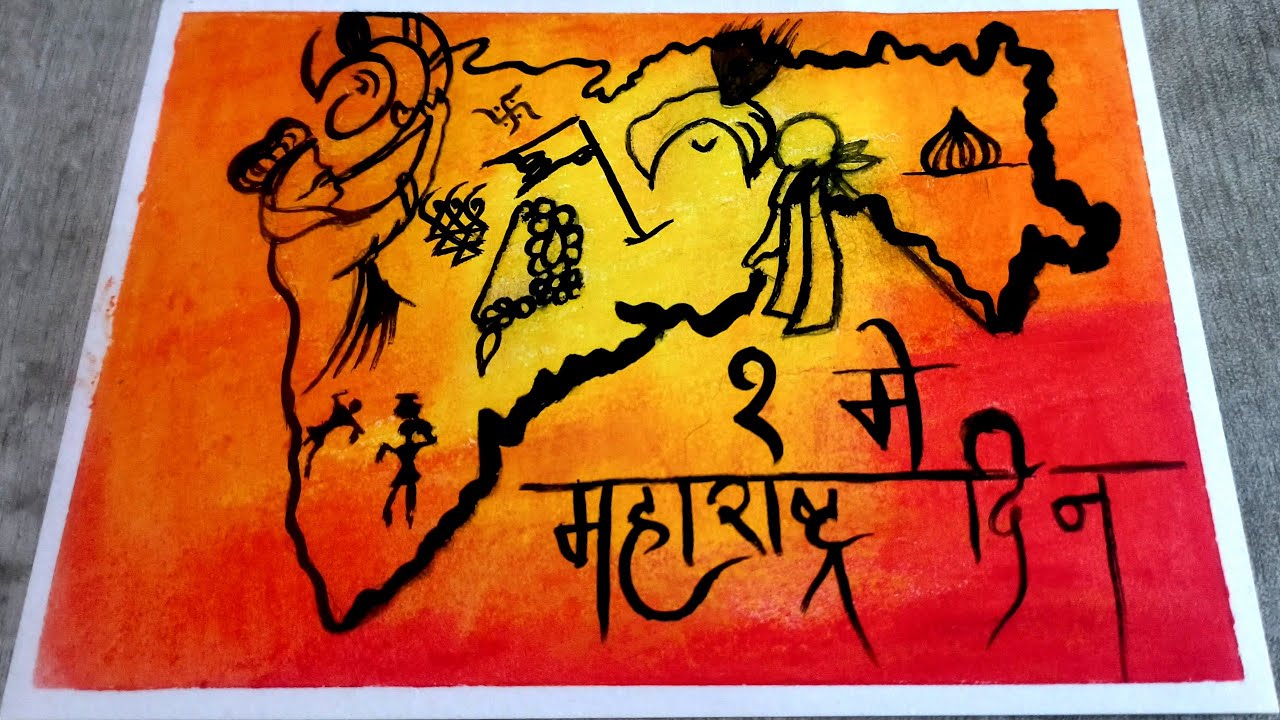 १ मे
महाराष्ट्र दिन